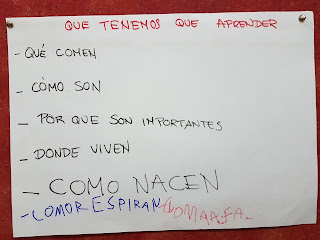 QUE TENEMOS QUE APRENDER
- QUÉ COMEN
- CÓMO SON
- POR QUE SON IMPORTANTES
- DONDE VIVEN
- COMO NACEN
- COMOR ESPIRAN